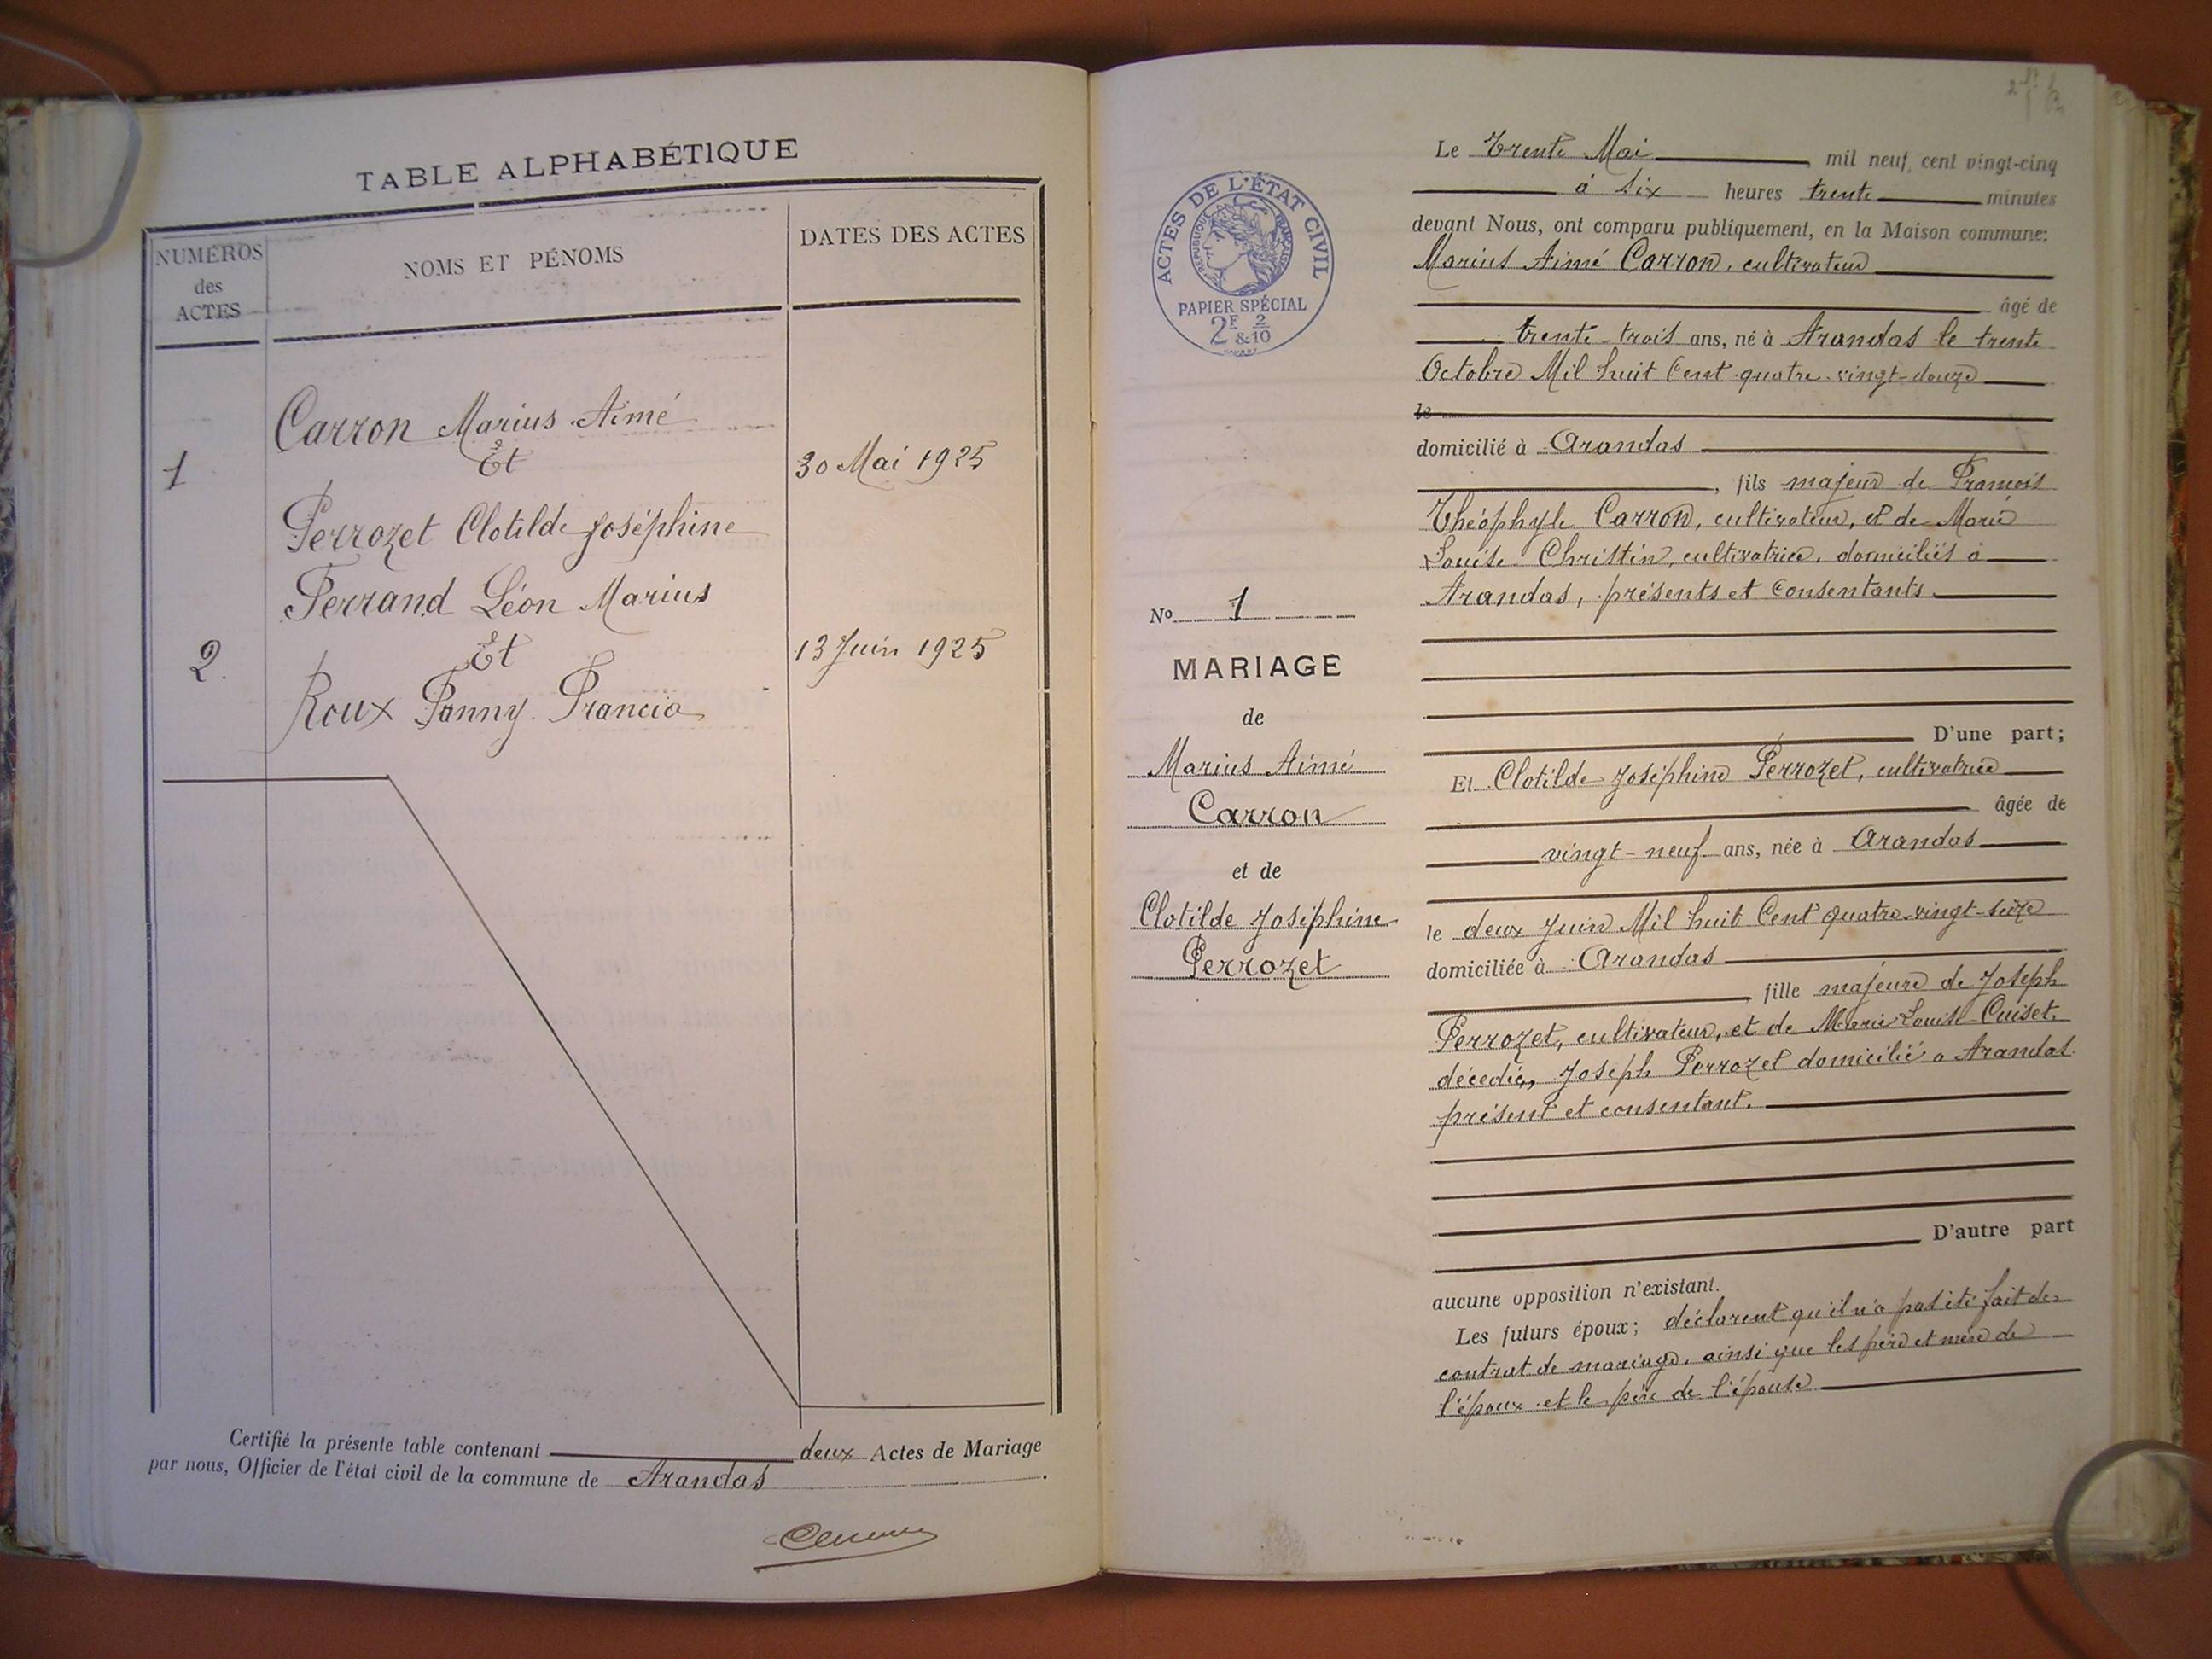 TABLE ALPHABÉTIQUE
NUMÉROS
des
ACTES
NOMS ET PÉNOMS
DATES DES ACTES
Carron Marius Aimé
1
Et
30 Mai 1925
Perrozet Clotilde Joséphine
Ferrand Léon Marius
2.
Et
13 Juin 1925
Roux Fanny Francia
Certifié la présente table contenant deux Actes de Mariage
par nous, Officier de l'état civil de la commune de Arandas.
ACTES DE L'ÉTAT CIVIL
RÉPUBLIQUE FRANÇAISE
PAPIER SPÉCIAL
2F 2
& 10
No 1
MARIAGE
de
Marius Aimé
Carron
et de
Clotilde Joséphine
Perrozet
Le trente Mai mil neuf cent vingt-cinq
à six heures trente minutes
devant Nous, ont comparu publiquement, en la Maison commune:
Marius Aimé Carron, cultivateur
âgé de
trente-trois ans, né à Arandas le trente
Octobre Mil huit Cent quatre-vingt-douze
le
domicilié à Arandas
, fils majeur de François
Théophyle Carron, cultivateur, et de Marie
Louise Christin, cultivatrice, domiciliés à
Arandas, présents et consentants.
D'une part;
Et Clotilde Joséphine Perrozet, cultivatrice
âgée de
vingt-neuf ans, née à Arandas
le deux Juin Mil huit Cent quatre-vingt-seize
domiciliée à Arandas
, fille majeure de Joseph
Perrozet, cultivateur, et de Marie Louise Cuiset,
décedée, Joseph Perrozet domicilié a Arandas
présent et consentant.
D'autre part
aucune opposition n'existant.
Les futurs époux; déclarent qu'il n'a pas été fait de
contrat de mariage, ainsi que les père et mère de
l'époux et le père de l'épouse